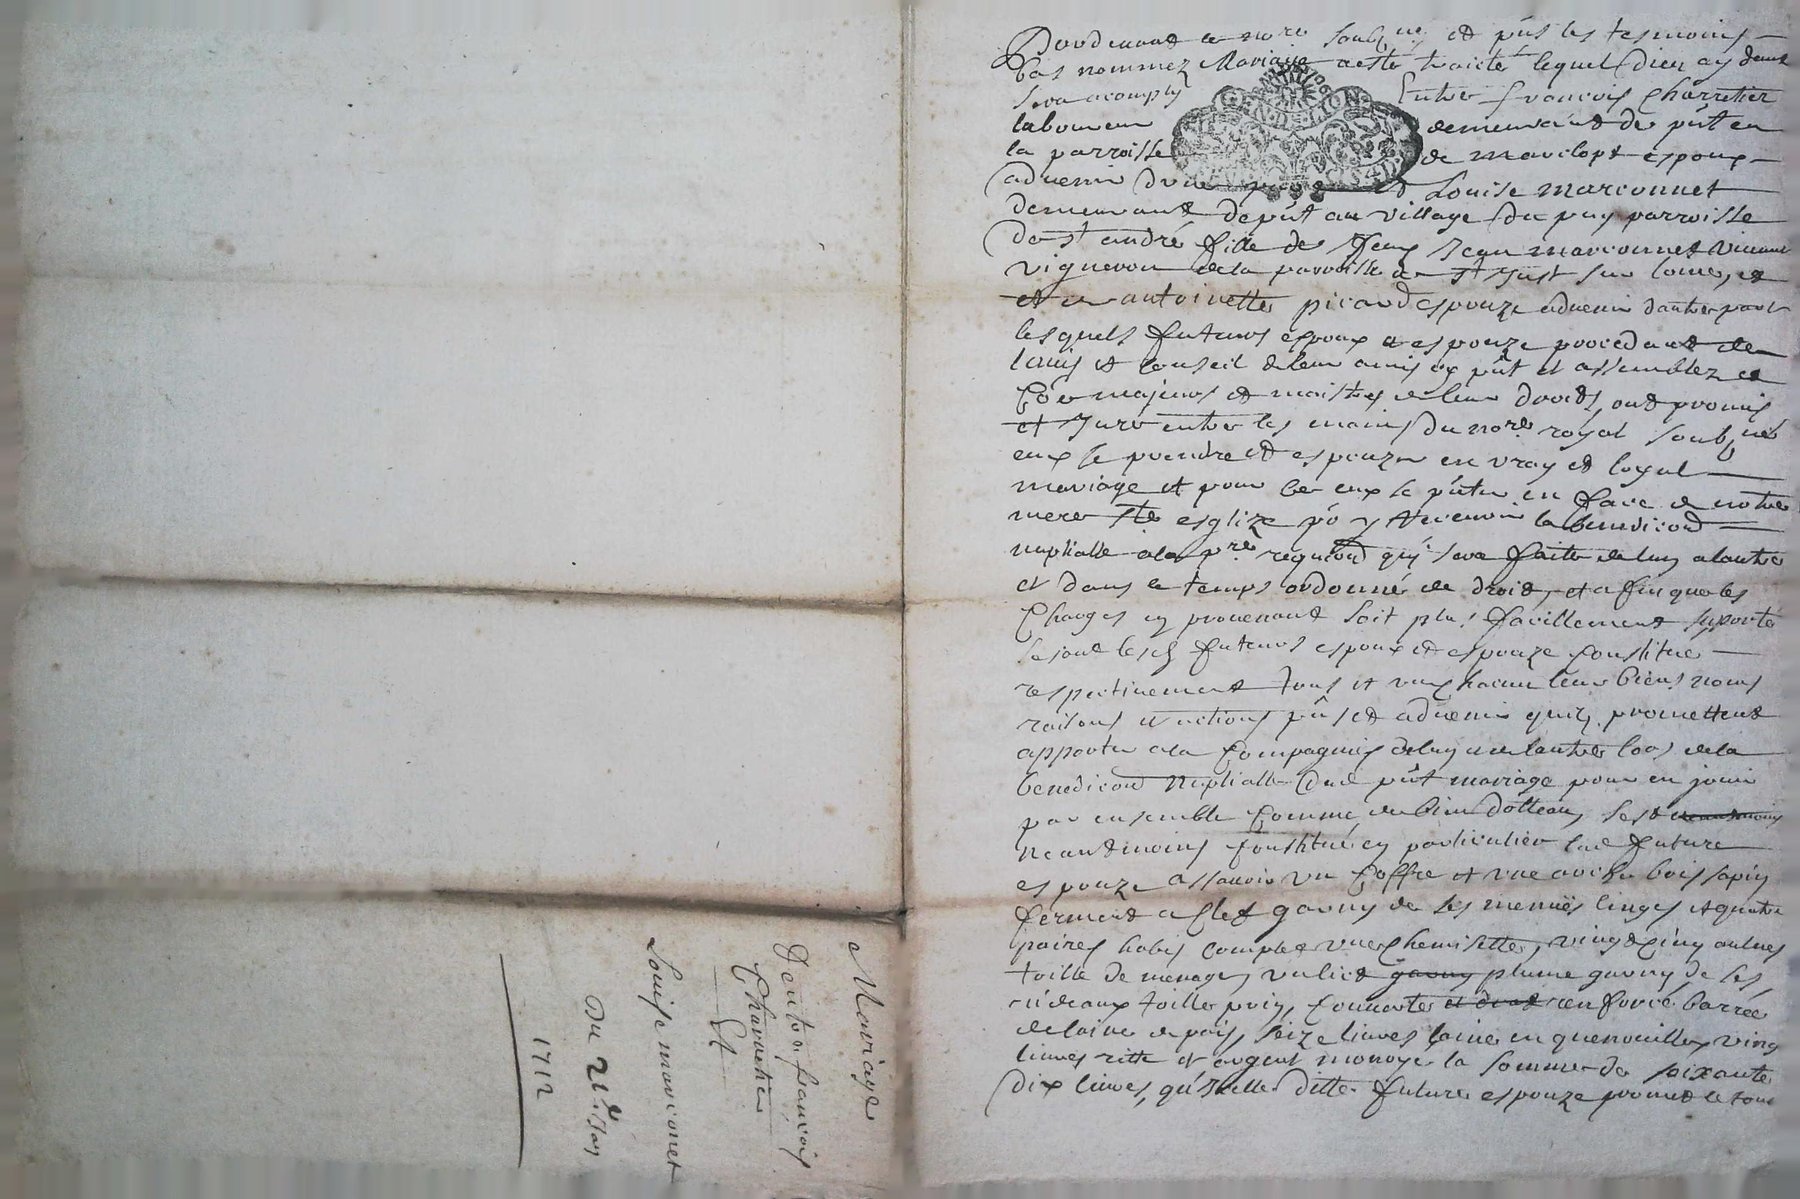 Pardevant le no.re soubz.né et p̃ns les tesmoins
bas nommez Mariage a esté traicté lequel Dieu aydant
sera acomply Entre françois Charretier
laboureur demeurant de p̃nt en
la parroisse de Mavelopt espoux
advenir d'une part et Louise marconnet
demeurant de p̃nt au village du puy parroisse
de st andré fille de feux Jean marconnet vivant
vigneron de la parroisse de st Just sur loire, et
et antoinette picard espouze advenir d'autre part
lesquels futurs espoux et espouze procedant de
l'avis et conseil de leur amis p̃nt et assemblez et
Co͂e majeurs et maistres de leur droits, ont promis
et Juré entre les mains du no.re royal soubz.né
eux se prendre et espouzer en vray et loyal
mariage et pour ce eux se p̃nter en face de notre
mere ste esglize po͂ y recevoir la benediction
nuptialle a la p.re requi͂on qui sera faitte de l'un a lautre
et dans le temps ordonné de droit, et afin que les
Charges en provenant soit plus facillement suporté
se sont lesd futurs espoux et espouze constitué
respectivement tous et un chacun leur biens noms
raisons et actions p̃ns et advenir qu'ils promettent
apporter a la Compagnie de l'un et de lautre lors de la
benedi͂con Nuptialle dud p̃nt mariage pour en jouir
par ensemble Comme de bien dotteaux, sest neantmoins
Neantmoins constitué en particulier lad future
espouze assavoir un Coffre et une arche bois sapin
fermant a clef garny de ses menuës linges et quatre
paires habis complet une chemisette, vingt cinq aulnes
toille de menage, un lict garny plume garny de ses
rideaux toille prin, couverte et drat renforcé barrée
de laine de païs, seize livres laine en quenouille, ving
livres ritte et argent monoye la somme de soixante
dix livres, qu'Icelle ditte future espouze promet le tout
Mariage
D'entre françois
Charretier
Et
Louise marconet
Du 21e Jan
1712